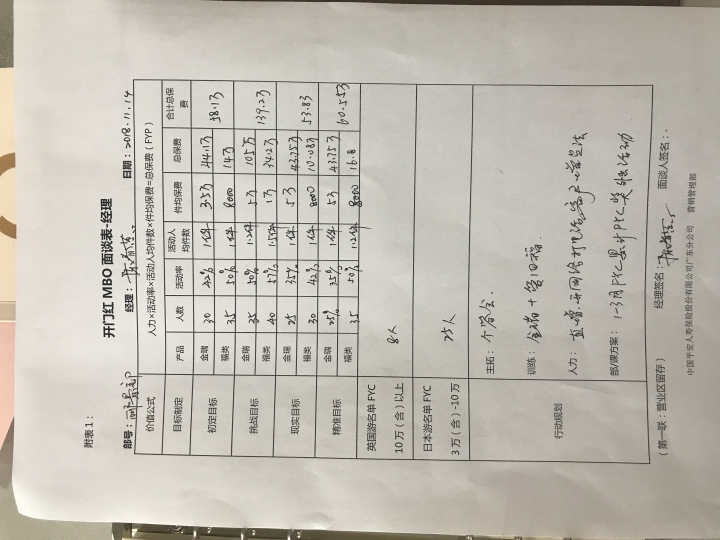 附表1：
开门红 MBO 面谈表-经理
部号： 经理： 日期：2018.11.14
价值公式 人力×活动率×活动人均件数×件均保费=总保费（FYP）
目标制定 产品 人数 活动率 活动人均件数 件均保费 总保费 合计总保费
初定目标 金瑞 30 42% 1.1件 3.5万 44.1万 58.1万
福类 35 50% 1.1件 8000 14万
挑战目标 金瑞 35 50% 1.2件 5万 105万 139.2万
福类 40 57% 1.5件 1万 34.2万
现实目标 金瑞 25 35% 1件 5万 43.75万 53.83
福类 30 42% 1件 8000 10.08万
精准目标 金瑞 25% 35% 1件 5万 43.75万 60.55万
福类 35 50% 1.2件 8000 16.8
英国游名单 FYC
10 万（含）以上 8人
日本游名单 FYC
3 万（含）-10 万 25人
行动规划
主拓：个答会．
训练：金瑞+福
人力：直增．开网络
部/课方案：1-3月FYC累计FYC奖励活动．
（第一联：营业区留存） 经理签名： 面谈人签名：
中国平安人寿保险股份有限公司广东分公司 营销管理部